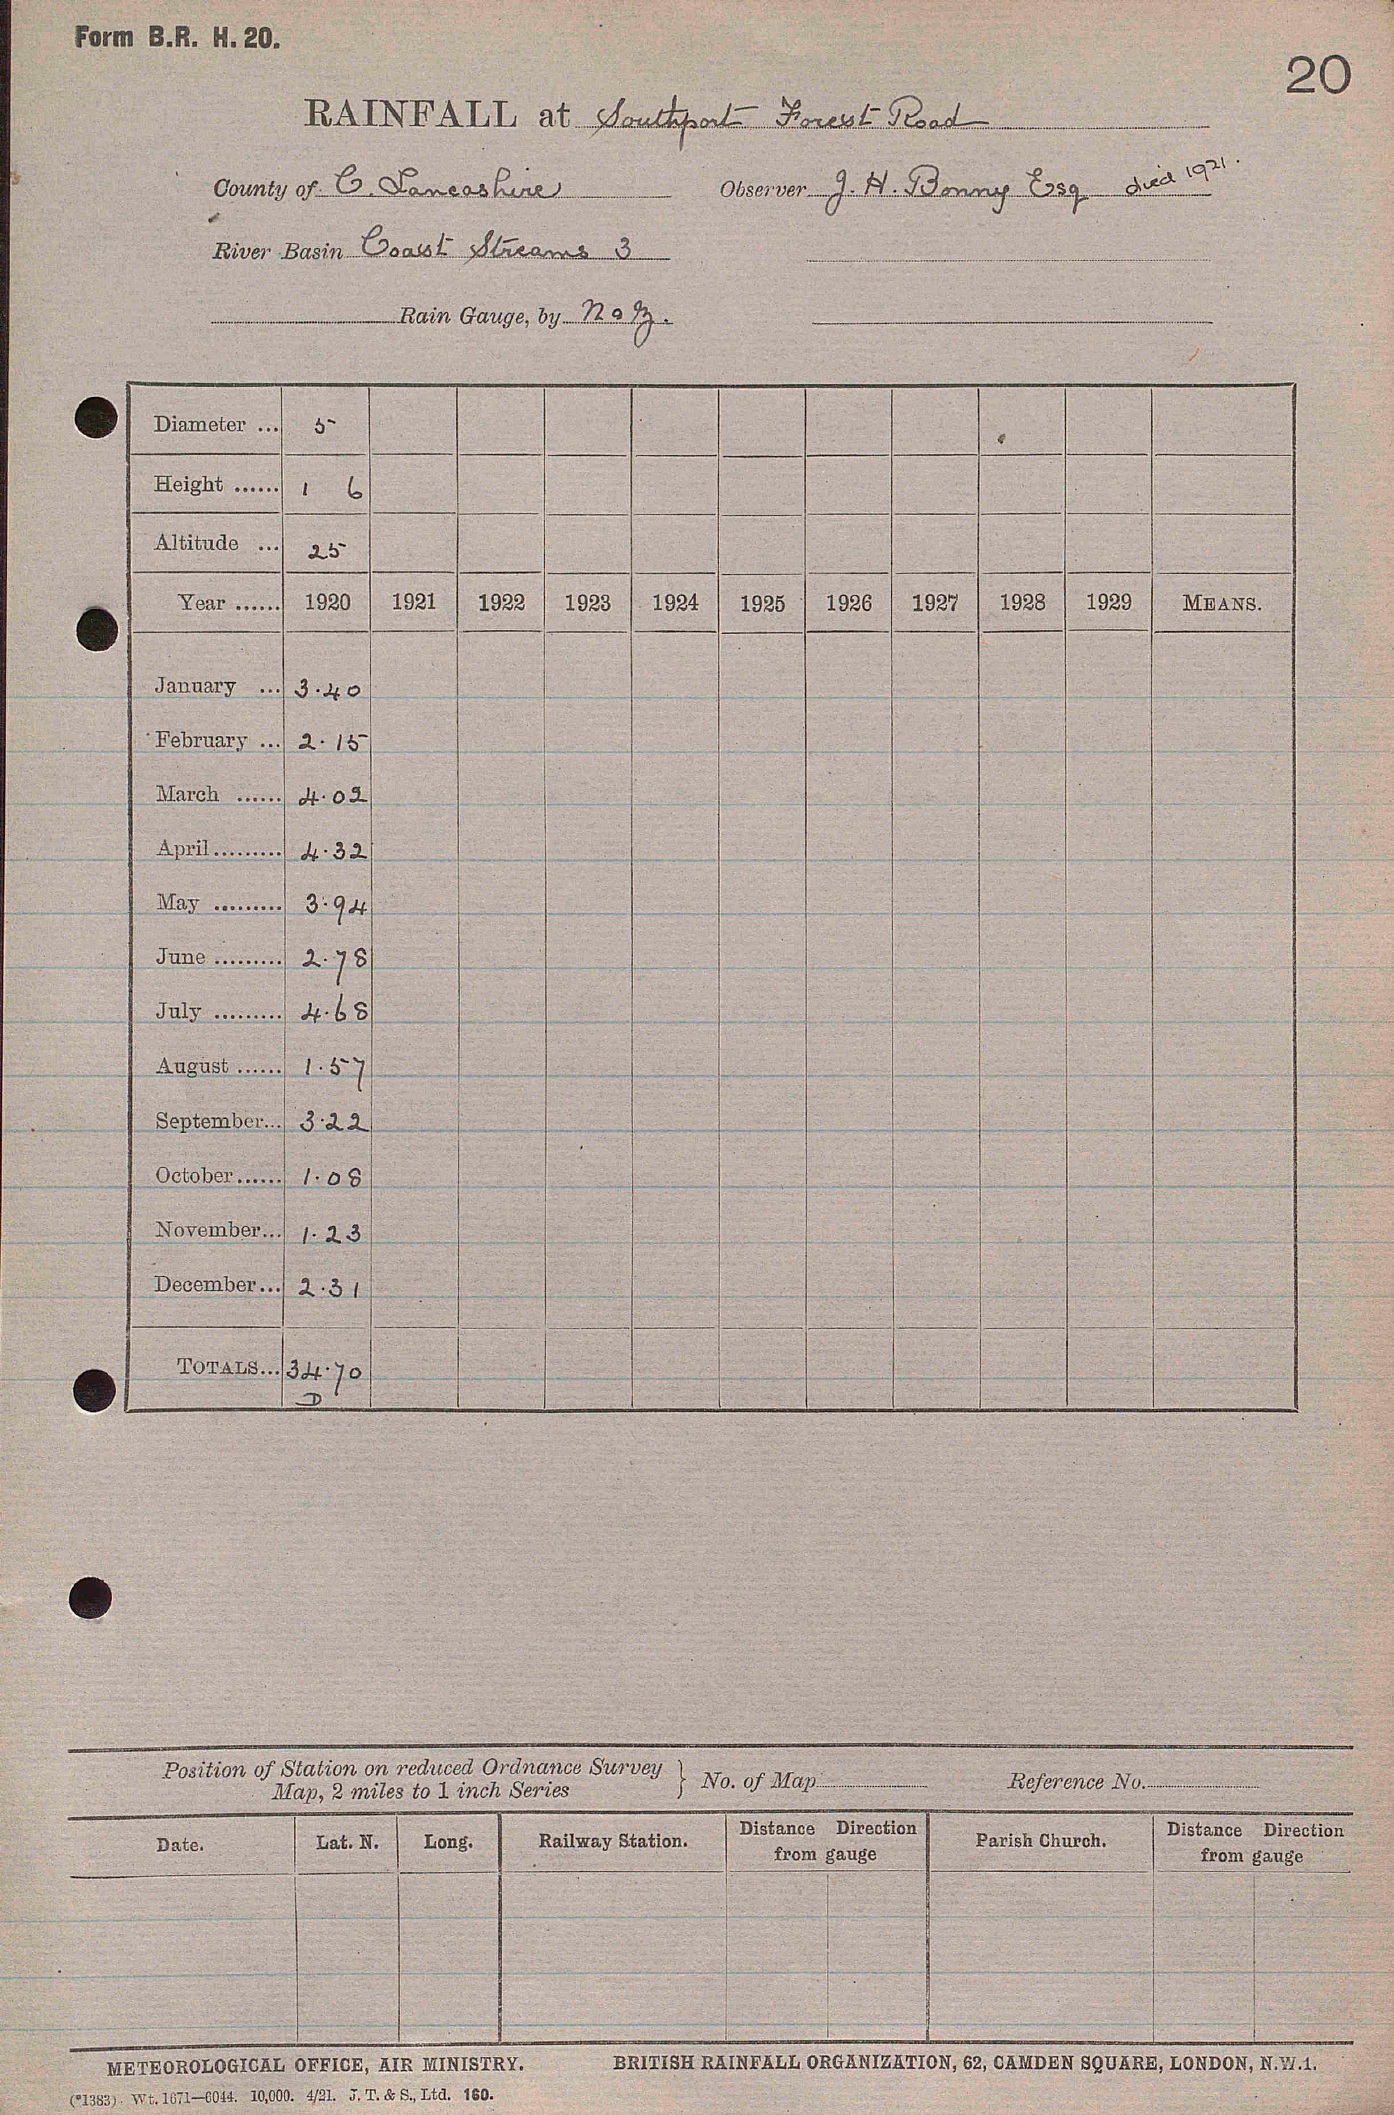 Form B.R. H. 20.
20
RAINFALL at Southport Forest Road
County of C. Lancashire Observer J. H. Bonny Esq died 1921.
River Basin Coast Streams 3
Rain Gauge, by N & Z.
Diameter ... 5
Height ...... 1 6
Altitude ... 25
Year ...... 1920 1921 1922 1923 1924 1925 1926 1927 1928 1929 MEANS.
January ... 3.40
February ... 2.15
March ...... 4.02
April ......... 4.32
May ......... 3.94
June ......... 2.78
July ......... 4.68
August ...... 1.57
September... 3.22
October...... 1.08
November... 1.23
December... 2.31
TOTALS... 34.70
D
Position of Station on reduced Ordnance Survey
Map, 2 miles to 1 inch Series } No. of Map Reference No.
Date. Lat. N. Long. Railway Station. Distance Direction from gauge Parish Church. Distance Direction from gauge
METEOROLOGICAL OFFICE, AIR MINISTRY. BRITISH RAINFALL ORGANIZATION, 62, CAMDEN SQUARE, LONDON, N.W.1.
(*1383) Wt. 1671—6044. 10,000. 4/21. J. T. & S., Ltd. 160.